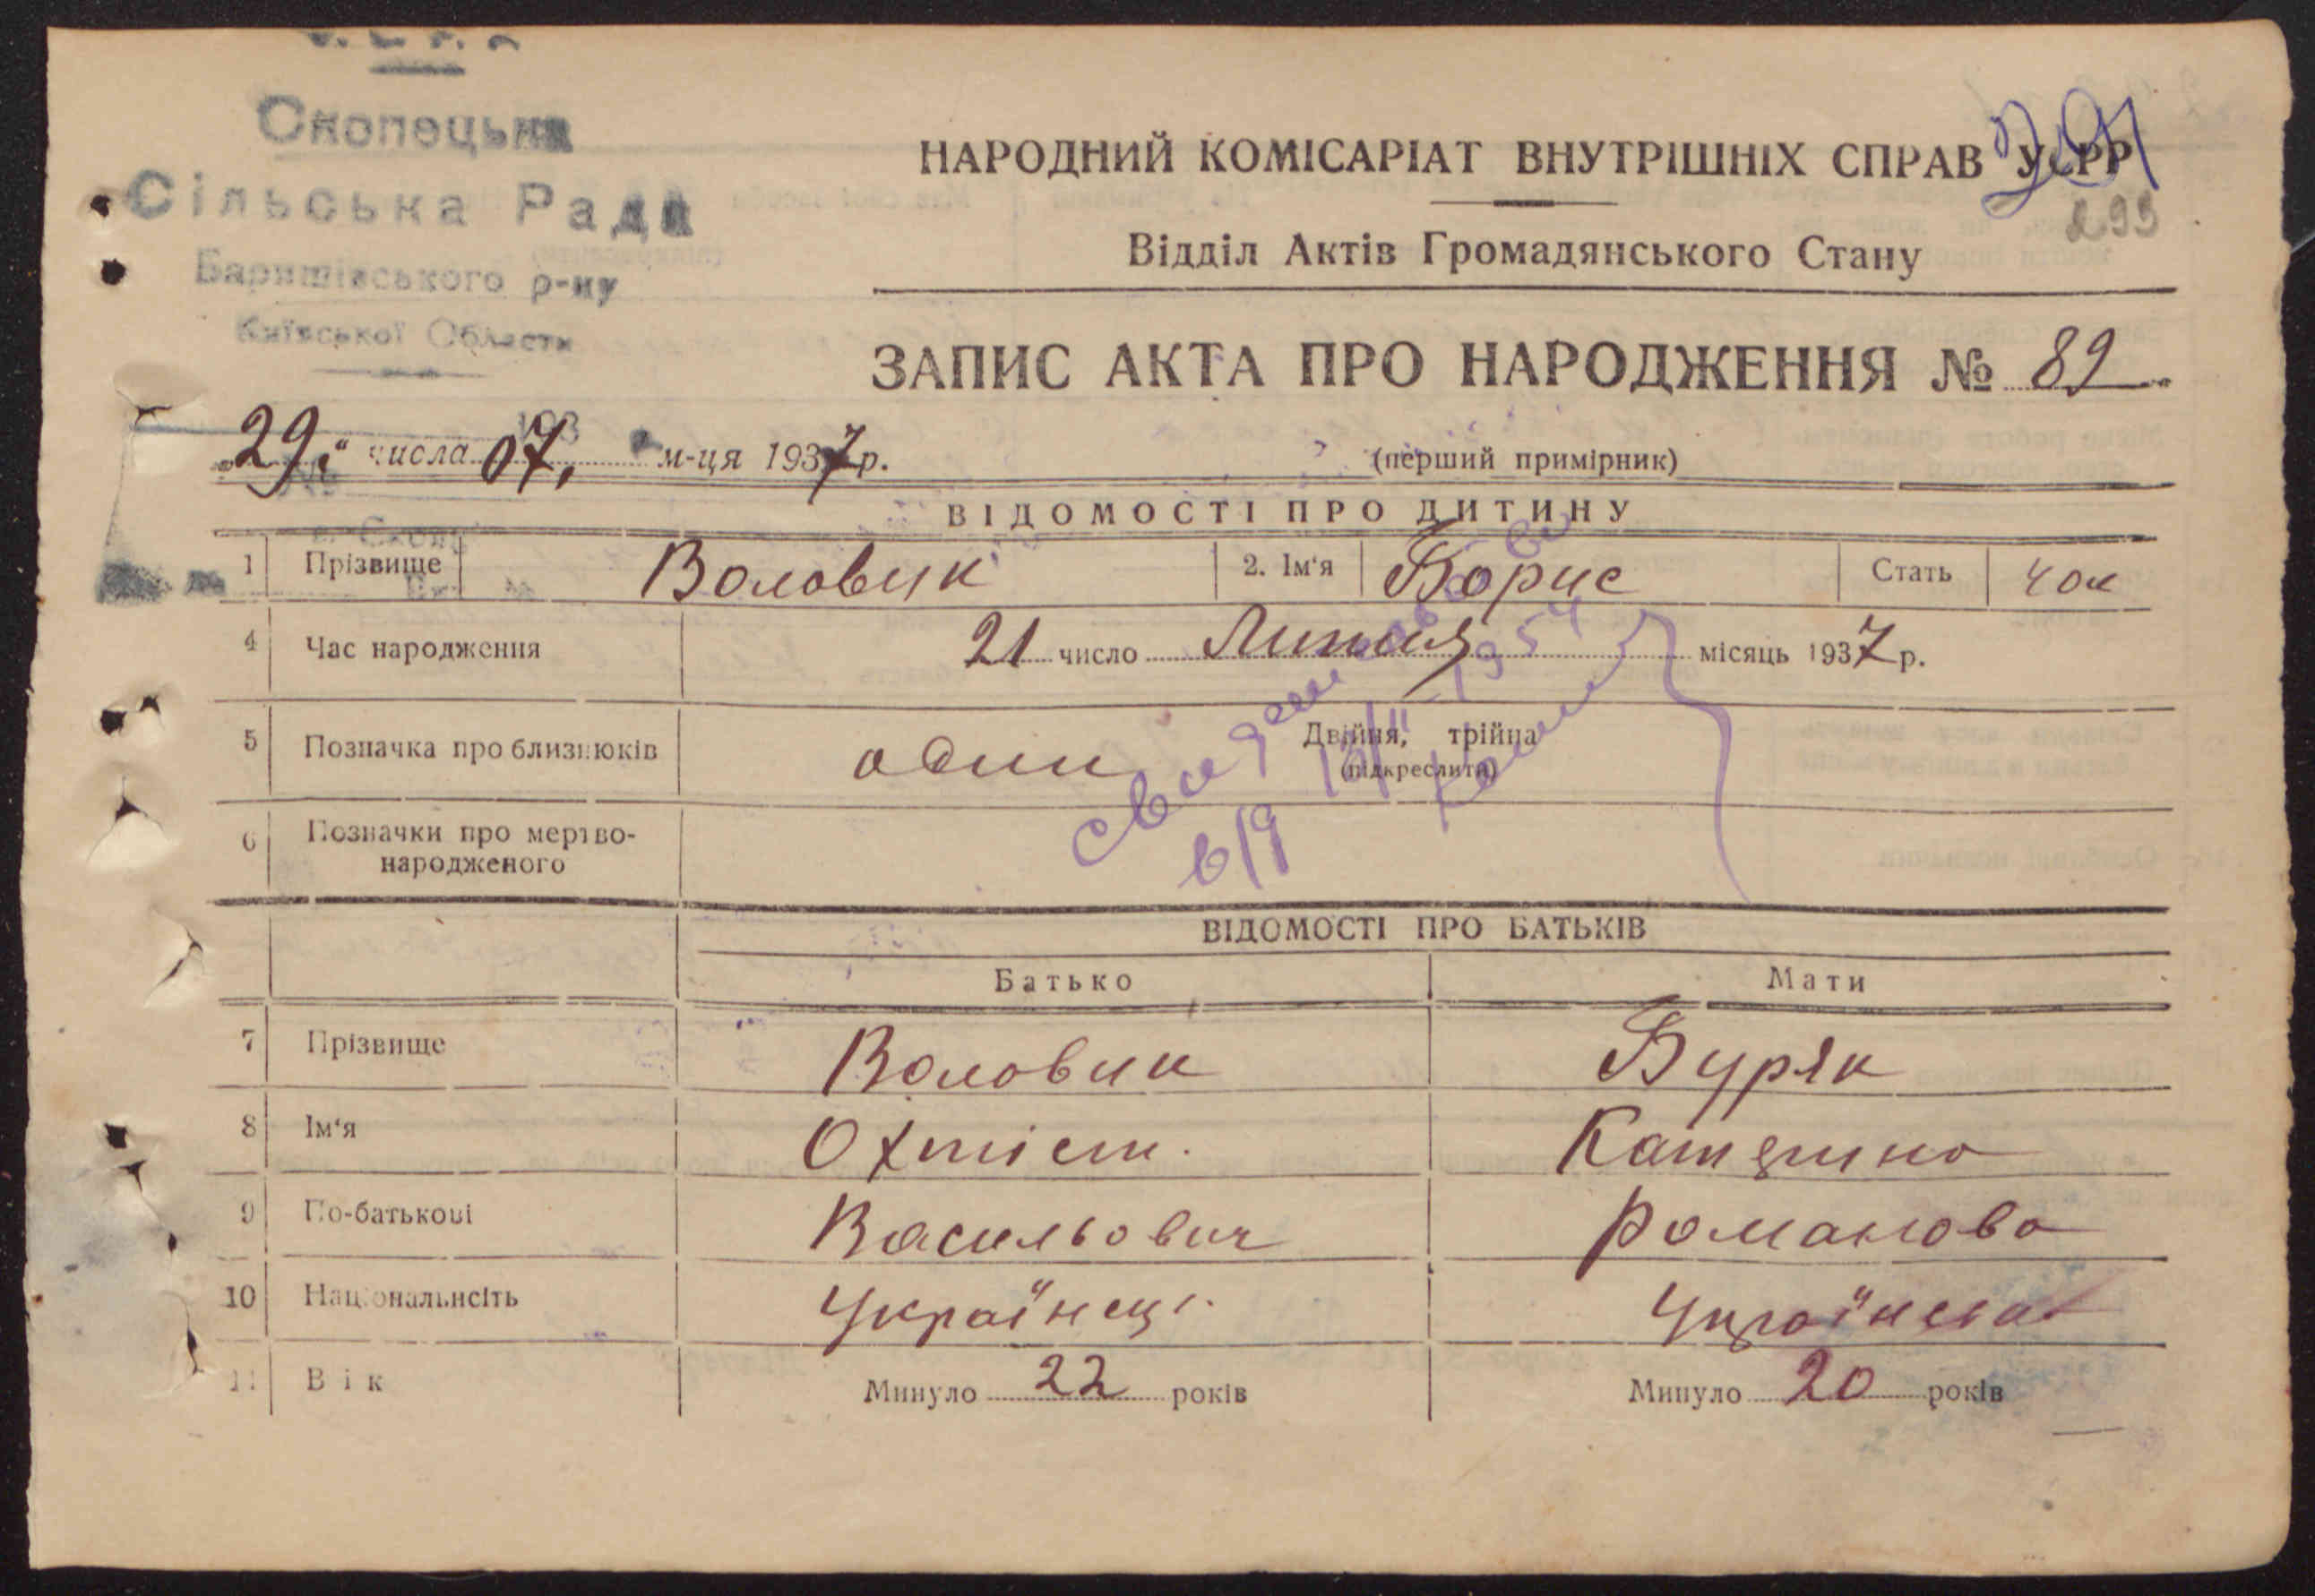 Скопецька
Сільська Рада
Баришівського р-ну
Київської Области
НАРОДНИЙ КОМІСАРІАТ ВНУТРІШНІХ СПРАВ УСРР
293
Відділ Актів Громадянського Стану
ЗАПИС АКТА ПРО НАРОДЖЕННЯ № 89
29 числа 07, м-ця 1937 р.
(перший примірник)
ВІДОМОСТІ ПРО ДИТИНУ
1 Прізвище Воловик 2. Ім'я Борис Стать чол
4 Час народження 21 число Липня місяць 1937 р.
5 Позначка про близнюків один Двійня, трійна
(підкреслити)
6 Позначки про мертво-
народженого
ВІДОМОСТІ ПРО БАТЬКІВ
Батько Мати
7 Прізвище Воловик Буряк
8 Ім'я Охтіст. Катерина
9 По-батькові Васильович Романова
10 Національнсіть Українець Українська
11 Вік Минуло 22 років Минуло 20 років